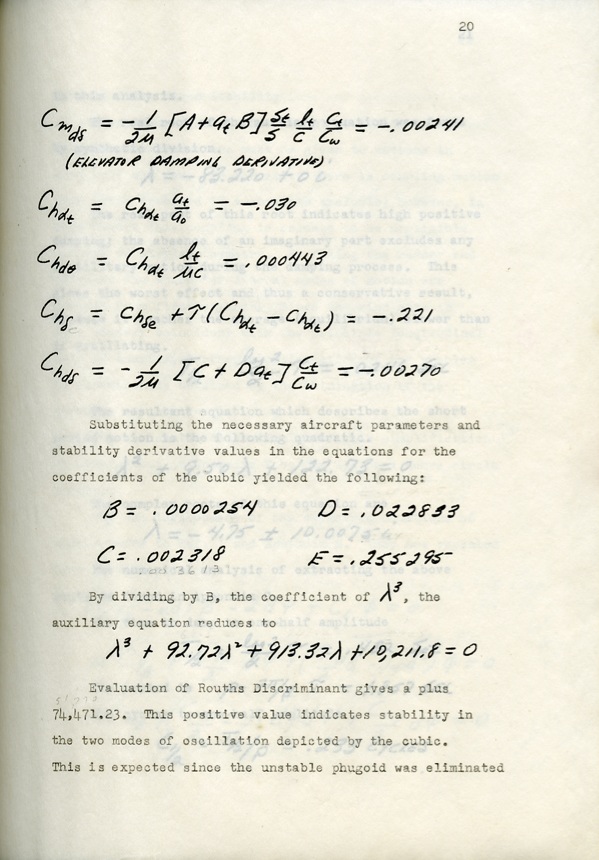 20
C_m_dδ = -1/2μ [A + a_t B] S_t/S l_t/c C_t/C_w = -.00241
(ELEVATOR DAMPING DERIVATIVE)
C_h_α_t = C_h_α_t a_t/a_o = -.030
C_h_dθ = C_h_α_t l_t/μc = .000443
C_h_δ = C_h_δe + τ(C_h_α_t - C_h_α_t) = -.221
C_h_dδ = -1/2μ [C + D a_t] C_t/C_w = -.00270
Substituting the necessary aircraft parameters and
stability derivative values in the equations for the
coefficients of the cubic yielded the following:
B = .0000254 D = .022833
C = .002318 E = .255295
By dividing by B, the coefficient of λ³, the
auxiliary equation reduces to
λ³ + 92.72λ² + 913.32λ + 10,211.8 = 0
Evaluation of Rouths Discriminant gives a plus
74,471.23. This positive value indicates stability in
the two modes of oscillation depicted by the cubic.
This is expected since the unstable phugoid was eliminated